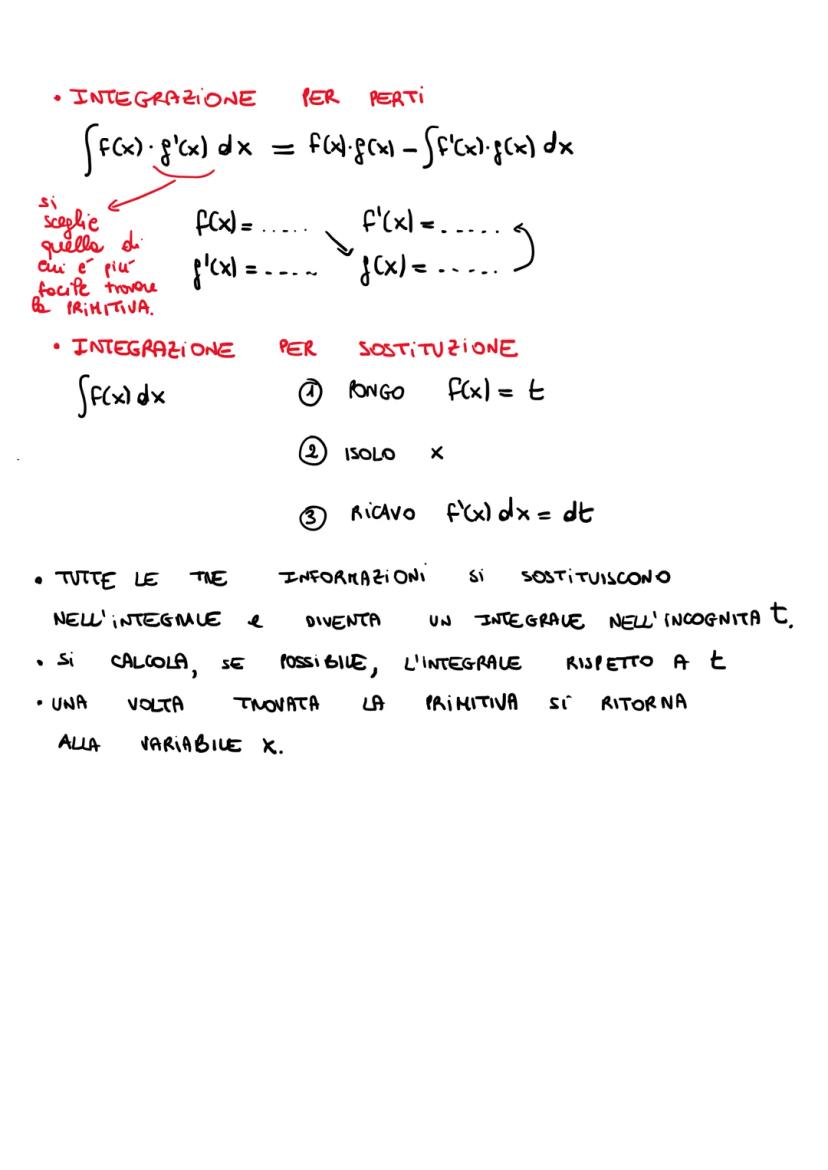 • INTEGRAZIONE PER PERTI
∫f(x)·g'(x) dx = f(x)·g(x) – ∫f'(x)·g(x) dx
si
sceglie
quella di
cui é piú
facile trovare
la PRIMITIVA.
f(x) = ..... f'(x) = ......
g'(x) = ..... g(x) = ......
• INTEGRAZIONE PER SOSTITUZIONE
∫f(x) dx ① PONGO f(x) = t
② ISOLO x
③ RICAVO f'(x) dx = dt
• TUTTE LE TRE INFORMAZIONI SI SOSTITUISCONO
NELL'INTEGRALE e DIVENTA UN INTEGRALE NELL'INCOGNITA t.
• SI CALCOLA, SE POSSIBILE, L'INTEGRALE RISPETTO A t
• UNA VOLTA TROVATA LA PRIMITIVA SI RITORNA
ALLA VARIABILE X.